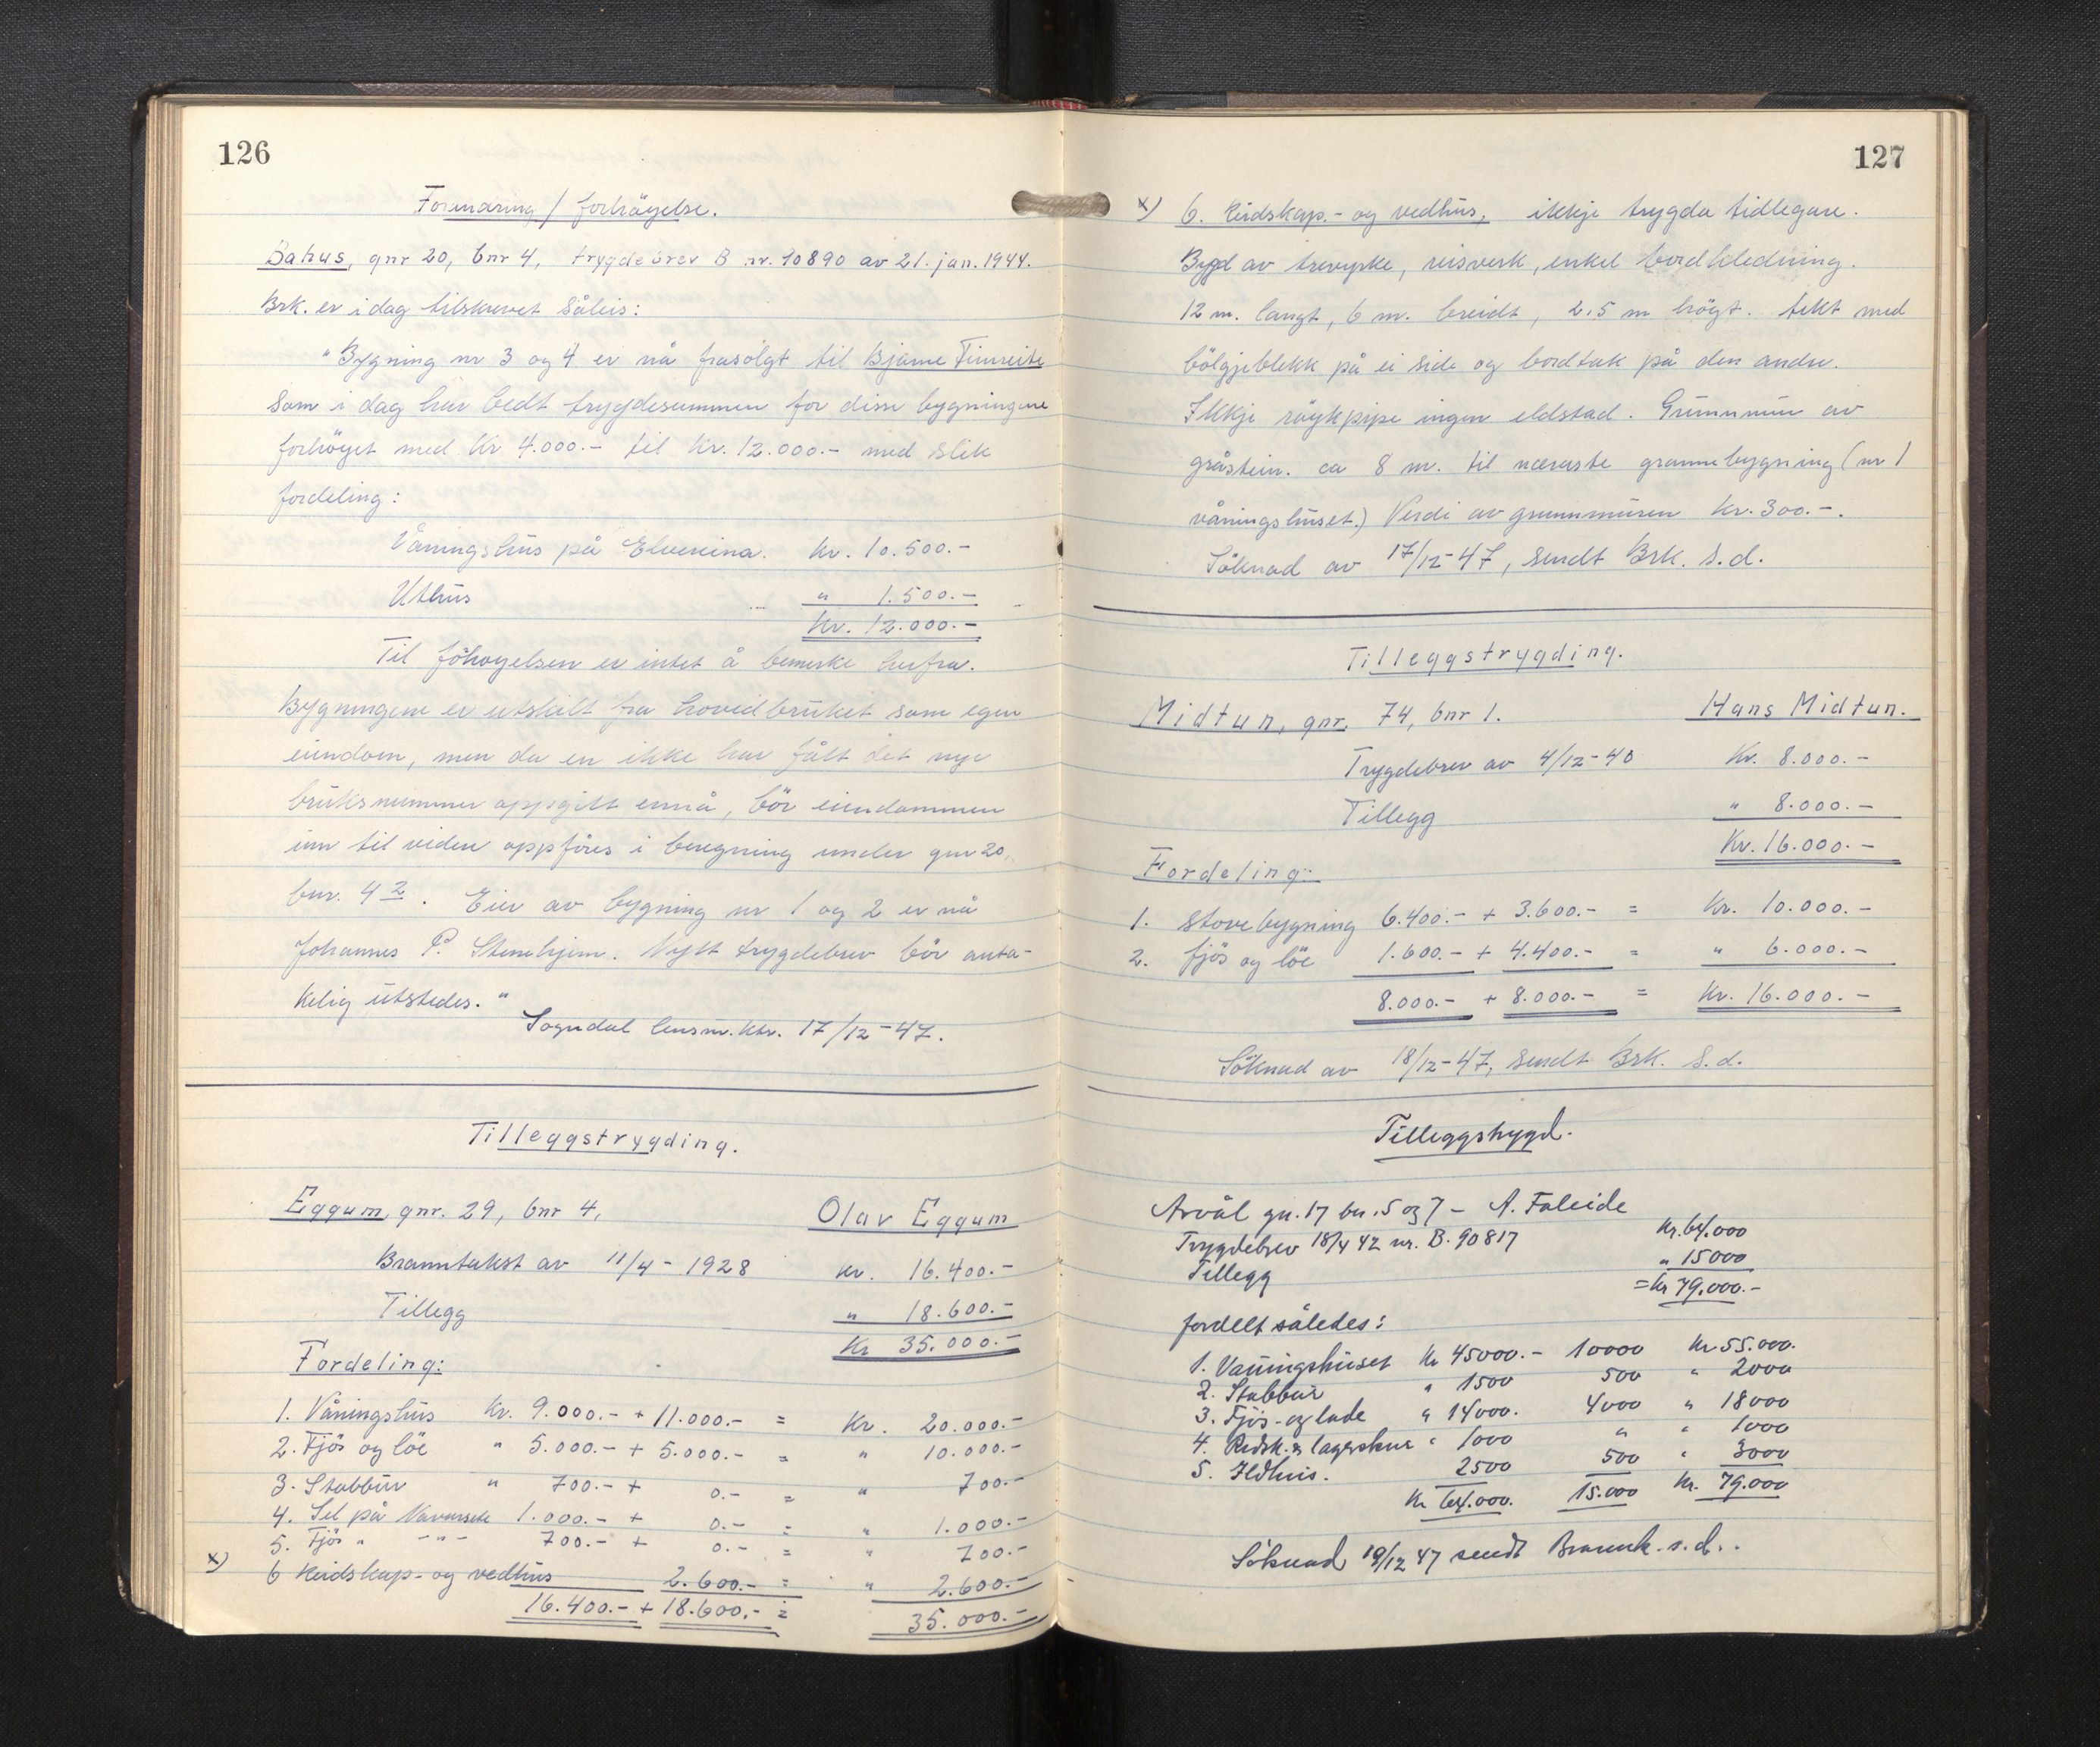 126
Forandring / forhöyelse.
Bahus, gnr 20, bnr 4, trygdebrev B nr. 10890 av 21. jan. 1944.
Brk. er i dag tilskrevet såleis:
"Bygning nr 3 og 4 er nå frasolgt til Bjarne Timreite
som i dag har bedt trygdesummen for disse bygningene
forhöyet med Kr 4.000.- til Kr. 12.000.- med slik
fordeling:
Våningshus på Elvesina. Kr. 10.500.-
Uthus " 1.500.-
Kr. 12.000.-
Til föhoyelsen er intet å bemerke herfra.
Bygningene er utskilt fra hovedbruket som egen
eiendom, men da en ikke har fått det nye
bruksnummer oppgitt ennå, bör eiendommen
inn til viden oppföres i beregning under gnr 20,
bnr. 4 2. Eier av bygning nr 1 og 2 er nå
Johannes P. Stenehjem. Nytt trygdebrev bör anta-
kelig utstedes."
Sogndal lensm.ktr. 17/12-47.
Tilleggstrygding.
Eggum, gnr. 29, bnr 4, Olav Eggum
Branntakst av 11/4 - 1928 Kr. 16.400.-
Tillegg " 18.600.-
Kr 35.000.-
Fordeling:
1. Våningshus Kr. 9.000.- + 11.000.- = Kr. 20.000.-
2. Fjös og löe " 5.000.- + 5.000.- = " 10.000.-
3. Stabbur " 700.- + 0.- = " 700.-
4. Sel på Navarsete 1.000.- + 0.- = " 1.000.-
5. Fjös " -"- 700.- + 0.- = " 700.-
x) 6 Reidskap- og vedhus 2.600.- = " 2.600.-
16.400.- + 18.600.- = 35.000.-
127
x) 6. Reidskap- og vedhus, ikkje trygda tidlegare.
Bygd av trevyrke, reisverk, enkel bordkledning.
12 m. langt, 6 m. breidt, 2.5 m högt. tekt med
bölgjeblekk på ei side og bordtak på den andre.
Ikkje röykpipe ingen eldstad. Grunnmur av
gråstein. ca 8 m. til næraste grannebygning (nr 1
våningshuset.) Verdi av grunnmuren Kr. 300.-.
Söknad av 17/12-47, sendt Brk. s.d.
Tilleggstrygding.
Midtun, gnr. 74, bnr 1. Hans Midtun.
Trygdebrev av 4/12-40 Kr. 8.000.-
Tillegg " 8.000.-
Kr. 16.000.-
Fordeling:
1. Stovebygning 6.400.- + 3.600.- = Kr. 10.000.-
2. fjös og löe 1.600.- + 4.400.- = " 6.000.-
8.000.- + 8.000.- = Kr. 16.000.-
Söknad av 18/12-47, sendt Brk. s.d.
Tilleggstrygd.
Arvål gn. 17 bn. 5 og 7 - A. Faleide
Trygdebrev 18/4 42 nr. B. 90817 Kr. 64.000
Tillegg " 15000
= Kr 79.000.-
fordelt således:
1. Vaaningshuset Kr 45000.- 10000 Kr 55.000.
2. Stabbur " 1500 500 " 2000
3. Fjös- og lade " 14000. 4000 " 18000
4. Redsk. & lagerskur " 1000 " " 1000
5. Ildhus. 2500 500 " 3000
Kr 64.000. 15.000 Kr. 79.000
Söknad 19/12 47 sendt Brannk. s.d..